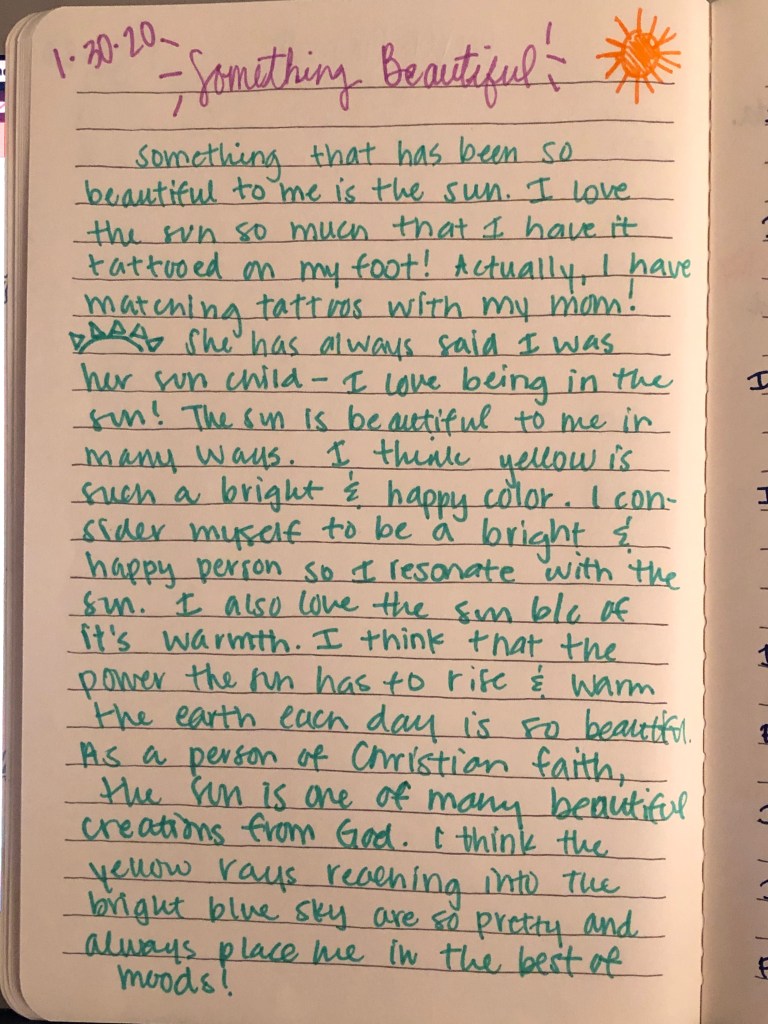 1.30.20
Something Beautiful
something that has been so
beautiful to me is the sun. I love
the sun so much that I have it
tattooed on my foot! Actually, I have
matching tattoos with my mom!
She has always said I was
her sun child - I love being in the
sun! The sun is beautiful to me in
many ways. I think yellow is
such a bright & happy color. I con-
sider myself to be a bright &
happy person so I resonate with the
sun. I also love the sun b/c of
it's warmth. I think that the
power the sun has to rise & warm
the earth each day is so beautiful.
As a person of Christian faith,
the sun is one of many beautiful
creations from God. I think the
yellow rays reaching into the
bright blue sky are so pretty and
always place me in the best of
moods!